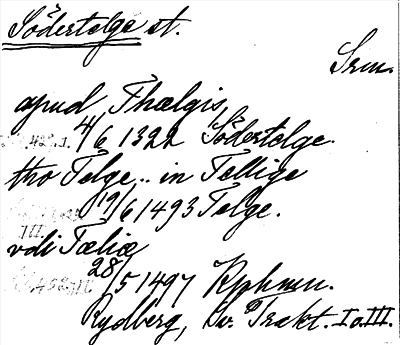 Södertelge st.
Srm.
apud Thælgis,
4/6 1322 Södertelge.
tho Telge.. in Tellige
19/6 1493 Telge.
vdi Tæliæ
28/5 1497 Kphmn.
Rydberg, Sv. Trakt. I o. III.